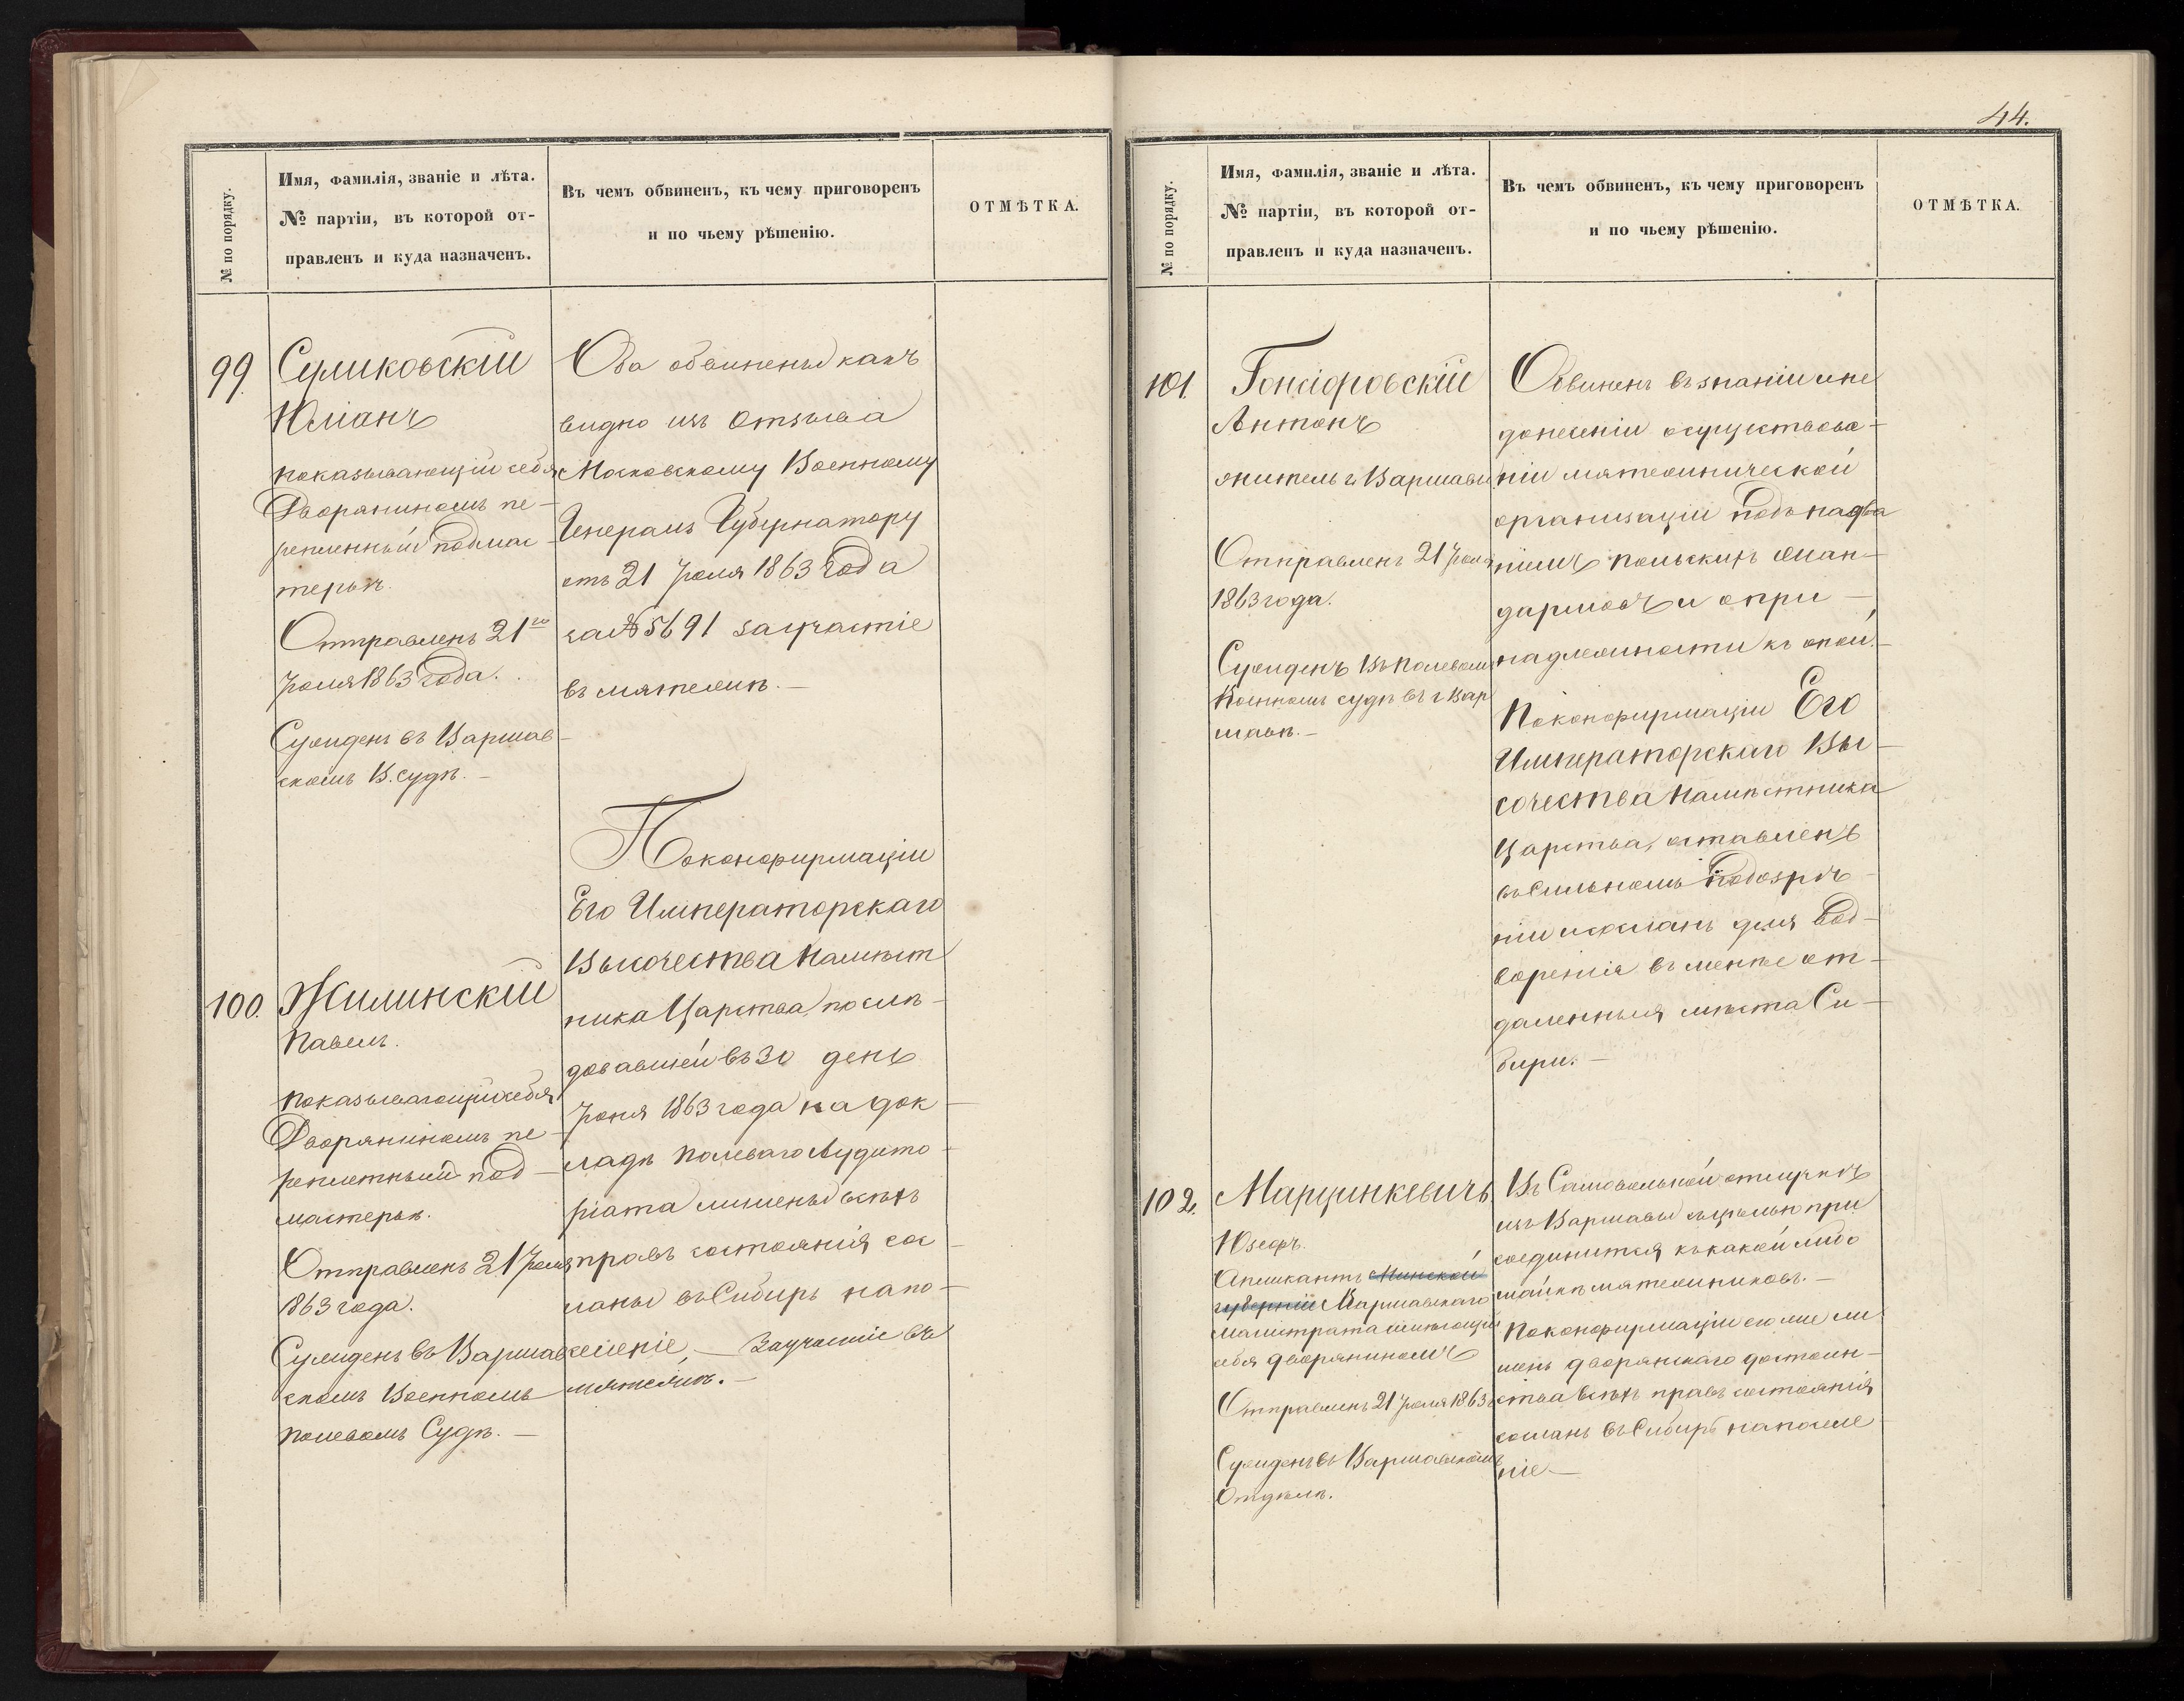 44.
№ по порядку.
Имя, фамилія, званіе и лѣта.
№ партіи, въ которой от-
правленъ и куда назначенъ.
Въ чемъ обвиненъ, къ чему приговоренъ
и по чьему рѣшенію.
ОТМѢТКА.
99.
Суликовскій
Юліанъ
показывающій себя
Дворяниномъ пе-
реплетный подмас-
терьи.
Отправленъ 21го
Іюля 1863 года.
Сужденъ въ Варшав-
скомъ В. судѣ. —
100.
Жилинскій
Павелъ.
показывающій себя
Дворяниномъ пе-
реплетный под-
мастерьи.
Отправленъ 21 Іюля
1863 года.
Сужденъ въ Варшав
скомъ Военномъ
полевомъ Судѣ. —
Оба обвинены какъ
видно изъ отзыва
Московскому Военному
Генералъ Губернатору
отъ 21 Іюля 1863 года
за № 5691 за участіе
въ мятежѣ. —
По конфирмаціи
Его Императорскаго
Высочества Намѣст
ника Царства, послѣ-
довавшей въ 30 день
Іюня 1863 года на док-
ладѣ Полеваго Аудито-
ріата лишены всѣхъ
правъ состоянія сос-
ланы въ Сибирь на по-
селеніе, — За участіе въ
мятежѣ. —
№ по порядку.
Имя, фамилія, званіе и лѣта.
№ партіи, въ которой от-
правленъ и куда назначенъ.
Въ чемъ обвиненъ, къ чему приговоренъ
и по чьему рѣшенію.
ОТМѢТКА.
101.
Гонсіоровскій
Антонъ
житель г. Варшавы
Отправленъ 21 Іюля
1863 года.
Сужденъ въ полевомъ
Военномъ судѣ въ г. Вар
шавѣ. —
Обвиненъ въ знаніи и не
донесеніи о существова-
ніи мятежнической
организаціи подъ назва
ніемъ польскихъ жан-
дармовъ и о при-
надлежности къ оной. —
По конфирмаціи Его
Императорскаго Вы-
сочества Намѣстника
Царства, оставленъ
въ сильномъ подозрѣ-
ніи и сосланъ для вод-
воренія въ менѣе от-
даленныя мѣста Си-
бири. —
102.
Марцинкевичъ
Юзефъ.
Апликантъ Минской
губерніи Варшавскаго
Магистрата именующій
себя дворяниномъ
Отправленъ 21 Іюля 1863
Сужденъ въ Варшавскомъ
Отдѣлѣ.
Въ Самовольной отлучкѣ
изъ Варшавы съ цѣлью при
соединится къ какой либо
шайкѣ мятежниковъ. —
По конфирмаціи его же ли
шенъ дворянскаго достоин-
ства всѣхъ правъ состоянія
сосланъ въ Сибирь на поселе
ніе —